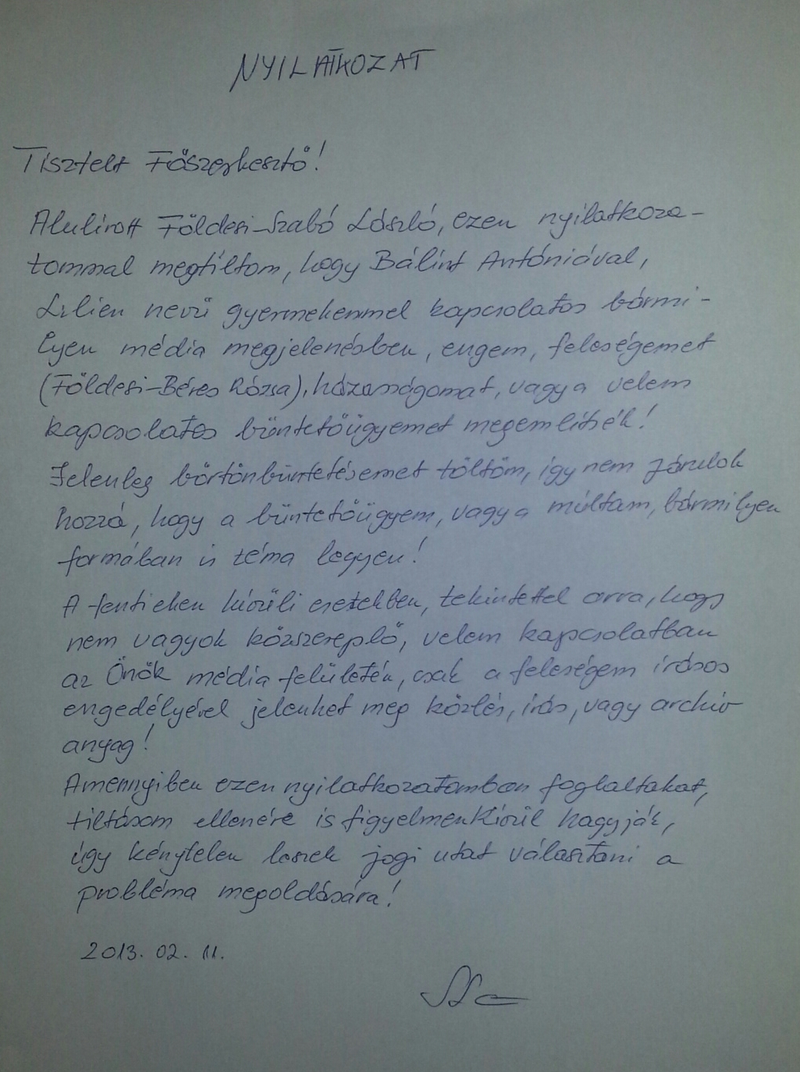 NYILATKOZAT
Tisztelt Főszerkesztő!
Alulírott Földesi-Szabó László, ezen nyilatkoza-
tommal megtiltom, hogy Bálint Antónióval,
Lilien nevű gyermekemmel kapcsolatos bármi-
lyen média megjelenésben, engem, feleségemet
(Földesi-Béres Rózsa), házasságomat, vagy a velem
kapcsolatos büntetőügyemet megemlítsék!
Jelenleg börtönbüntetésemet töltöm, így nem járulok
hozzá, hogy a büntetőügyem, vagy a múltam, bármilyen
formában is téma legyen!
A fentieken kívüli esetekben, tekintettel arra, hogy
nem vagyok közszereplő, velem kapcsolatban
az Önök média felületén, csak a feleségem írásos
engedélyével jelenhet meg közlés, írás, vagy archív
anyag!
Amennyiben ezen nyilatkozatomban foglaltakat,
tiltásom ellenére is figyelmenkívül hagyják,
úgy kénytelen leszek jogi utat választani a
probléma megoldására!
2013. 02. 11.